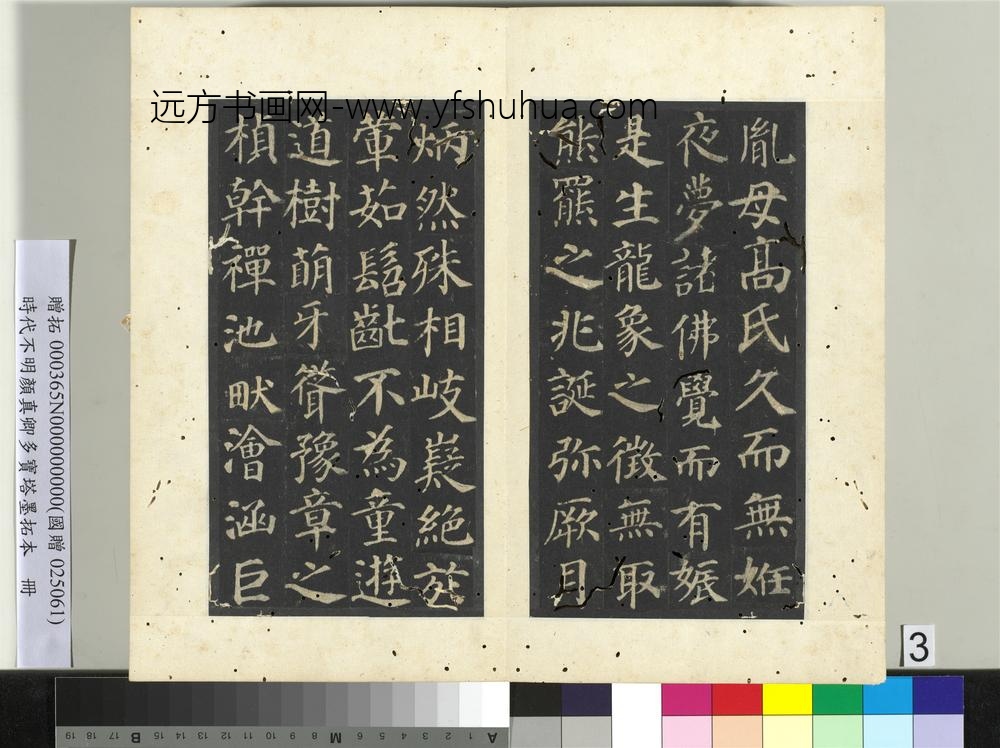 远方书画网-www.yfshuhua.com
胤母髙氏久而無姙
夜夢諸佛覺而有娠
是生龍象之徵無取
熊羆之兆誕弥厥月
炳然殊相岐嶷絶
葷茹髫齔不為童遊
道樹萌牙聳豫章之
楨幹禪池畎澮涵巨
贈拓 000365N000000000(國贈 025061)
時代不明顏真卿多寶塔墨拓本 冊
3
A 1 2 3 4 5 6 M 8 9 10 11 12 13 14 15 B 17 18 19